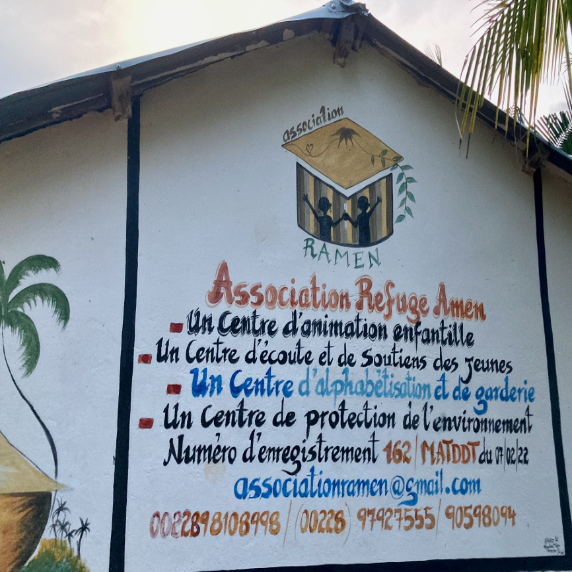 association
RAMEN
Association Refuge Amen
Un Centre d'animation enfantille
Un Centre d'écoute et de soutiens des jeunes
Un Centre d'alphabétisation et de garderie
Un Centre de protection de l'environnement
Numéro d'enregistrement 162/MATDDT du 07/02/22
associationramen@gmail.com
0022898108998 // (00228) 97927555/ 90598094